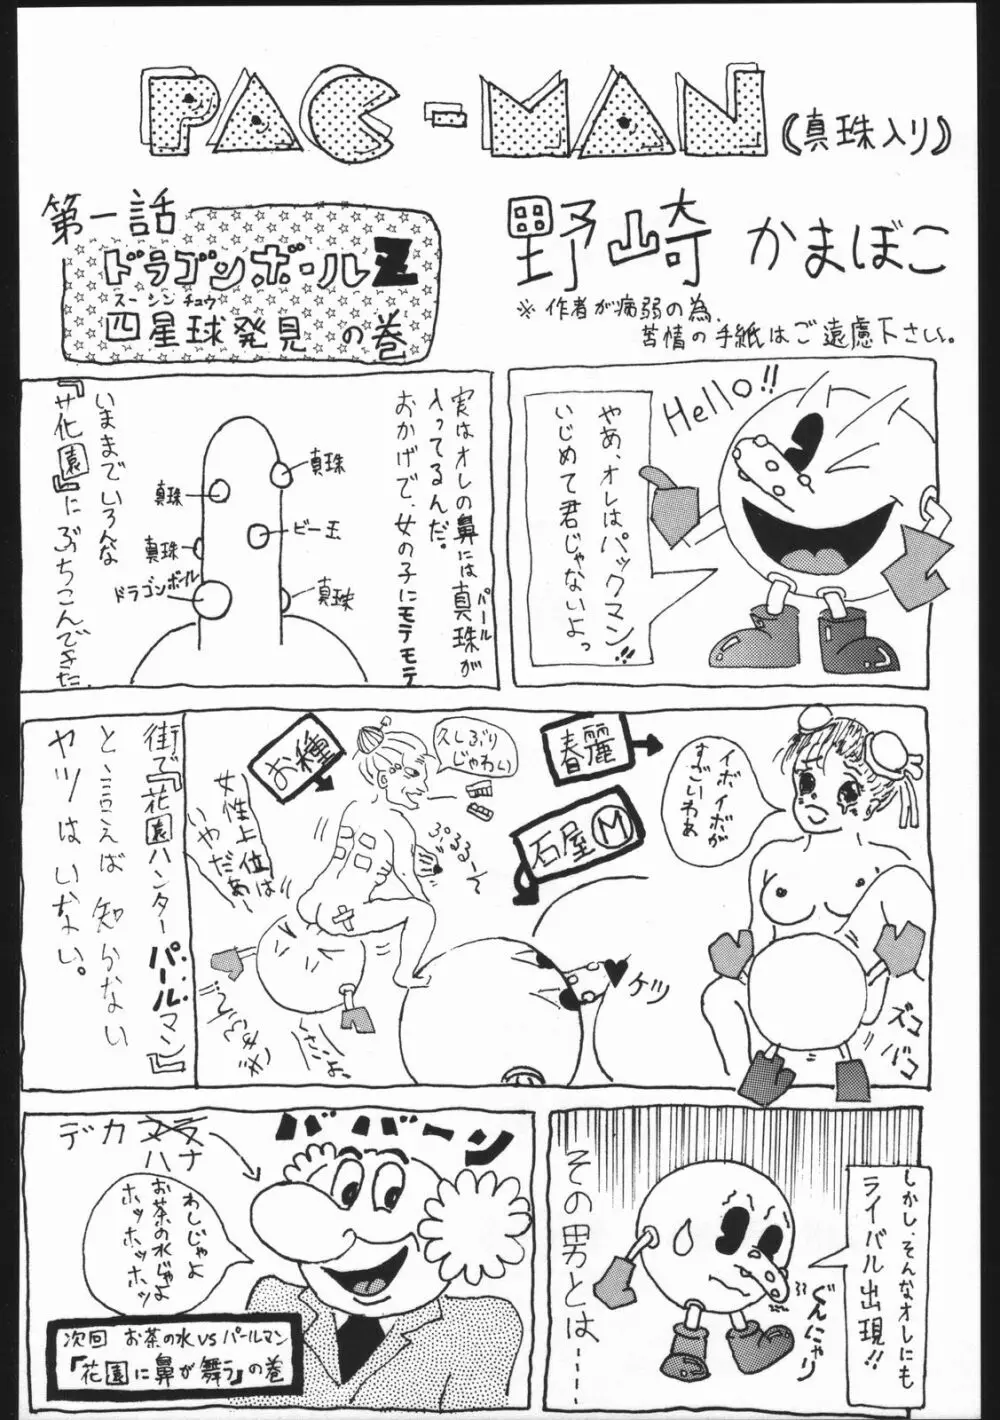 PAC-MAN
《真珠入り》
第一話
ドラゴンボールZ
スー シン チュウ
四星球発見の巻
野崎かまぼこ
※作者が病弱の為、
苦情の手紙はご遠慮下さい。
Hello!!
やあ、オレはパックマン!!
いじめて君じゃないよっ
実はオレの鼻には真珠が
パール
入ってるんだ。
おかげで、女の子にモテモテ
真珠
真珠
ビー玉
真珠
ドラゴンボール
真珠
いままでいろんな
『花園』にぶちこんできた。
春麗
イボイボが
すごいわぁ
ズコ
バコ
石屋M
ケツ
お種
久しぶり
じゃわい
ぷるる〜って
女性上位は
いやだぁ〜
街で『花園ハンターパールマン』
と言えば知らない
ヤツはいない。
しかし、そんなオレにも
ライバル出現!!
ぐんにゃり
その男とは……
ババーン
デカ
ハナ
わしじゃよ
お茶の水じゃよ
ホッホッホッ
次回 お茶の水vsパールマン
『花園に鼻が舞う』の巻